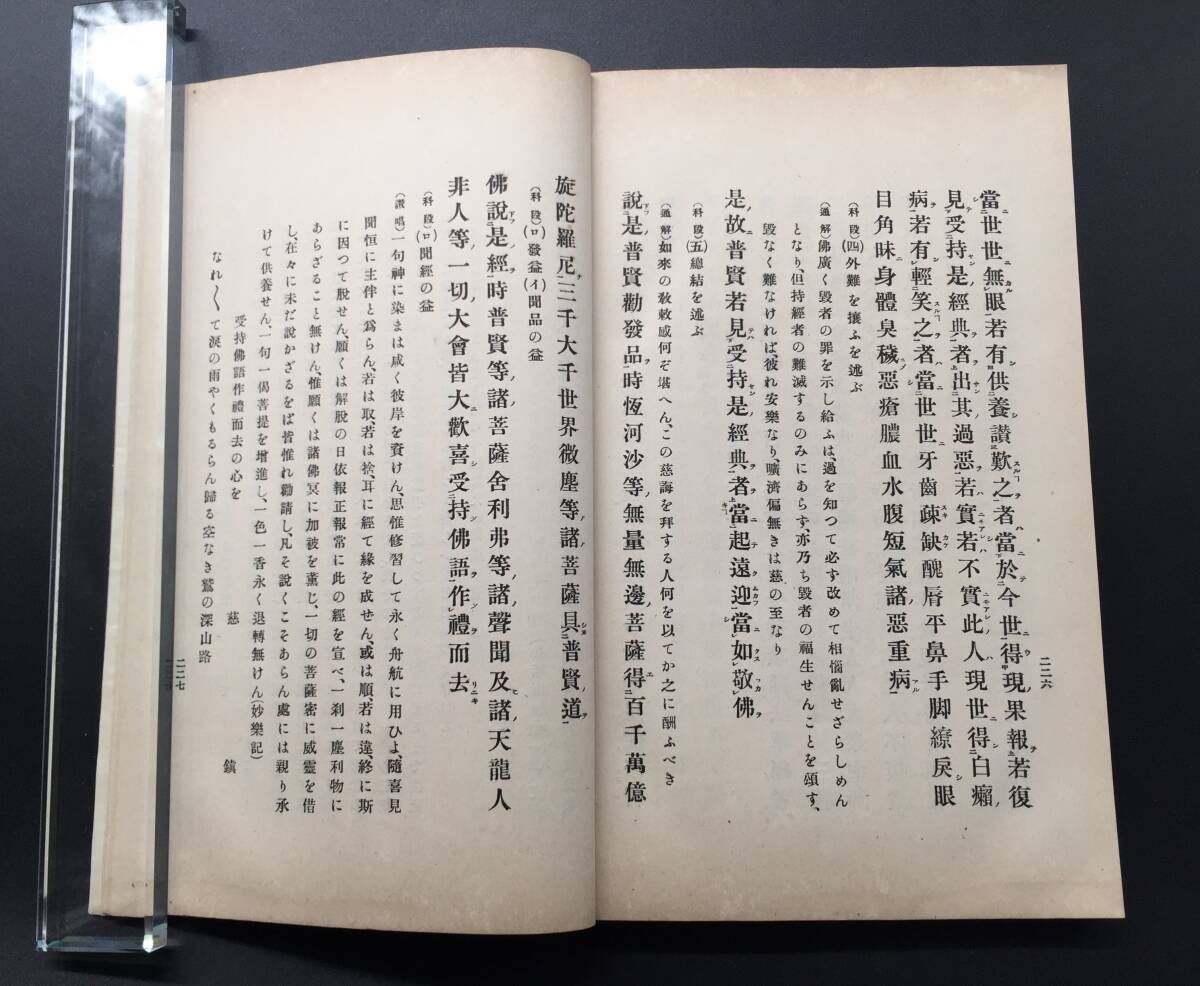 二二六
當世世無眼若有供養讚歎之者當於今世得現果報若復
見受持是經典者出其過惡若實若不實此人現世得白癩
病若有輕笑之者當世世牙齒疎缺醜脣平鼻手脚繚戾眼
目角昧身體臭穢惡瘡膿血水腹短氣諸惡重病
(科段)(四)外難を攘ふを述ぶ
(通解)佛廣く毀者の罪を示し給ふは、過を知つて必ず改めて相惱亂せざらしめん
となり、但持經者の難滅するのみにあらず、亦乃ち毀者の福生せんことを頌す、
毀なく難なければ、彼れ安樂なり、曠濟偏無きは慈の至なり
是故普賢若見受持是經典者當起遠迎當如敬佛
(科段)(五)總結を述ぶ
(通解)如來の敎敕感何ぞ堪へん、この慈誨を拜する人何を以てか之に酬ふべき
說是普賢勸發品時恆河沙等無量無邊菩薩得百千萬億
旋陀羅尼三千大千世界微塵等諸菩薩具普賢道
(科段)(ロ)發益(イ)聞品の益
佛說是經時普賢等諸菩薩舍利弗等諸聲聞及諸天龍人
非人等一切大會皆大歡喜受持佛語作禮而去
(科段)(ロ)聞經の益
(讚唱)一句神に染まは咸く彼岸を資けん、思惟修習して永く舟航に用ひよ、隨喜見
聞恒に主伴と爲らん、若は取、若は捨、耳に經て緣を成せん、或は順若は違終に斯
に因つて脫せん、願くは解脫の日依報正報常に此の經を宣べ、一刹一塵利物に
あらざること無けん、惟願くは諸佛冥に加被を薰じ、一切の菩薩密に威靈を借
し、在々に未だ說かざるをば皆惟れ勸請し、凡そ說くこそあらん處には親り承
けて供養せん、一句一偈菩提を增進し、一色一香永く退轉無けん(妙樂記)
受持佛語作禮而去の心を
慈鎭
なれ〱て淚の雨やくもるらん歸る空なき鷲の深山路
二二七